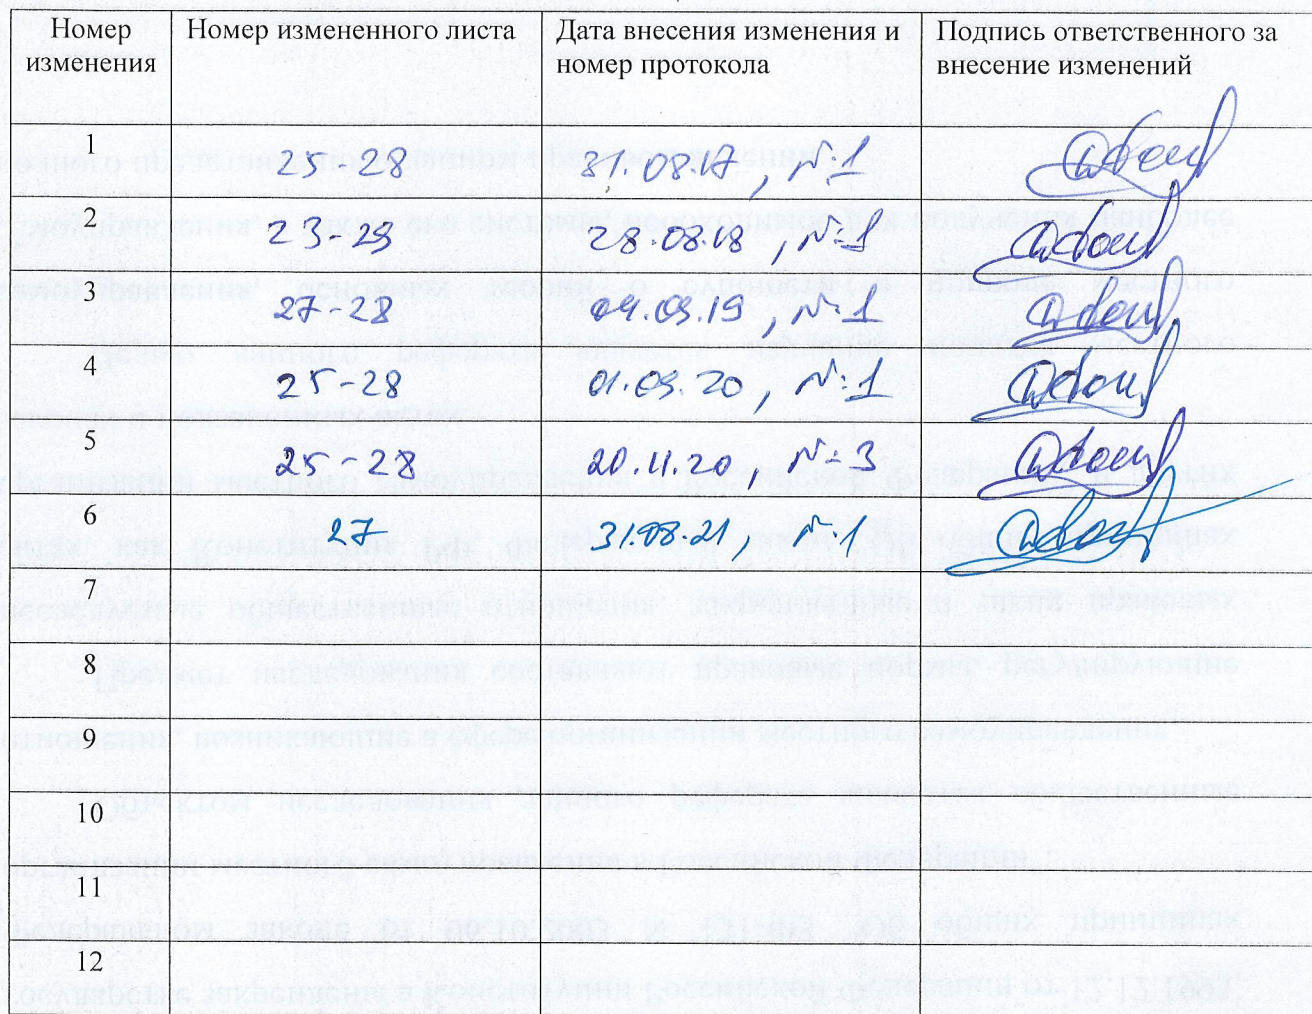 Номер изменения
Номер измененного листа
Дата внесения изменения и номер протокола
Подпись ответственного за внесение изменений
1 25-28 31.08.17, №1
2 23-29 28.08.18, №1
3 27-28 04.09.19, №1
4 25-28 01.09.20, №1
5 25-28 20.11.20, №3
6 27 31.08.21, №1
7
8
9
10
11
12